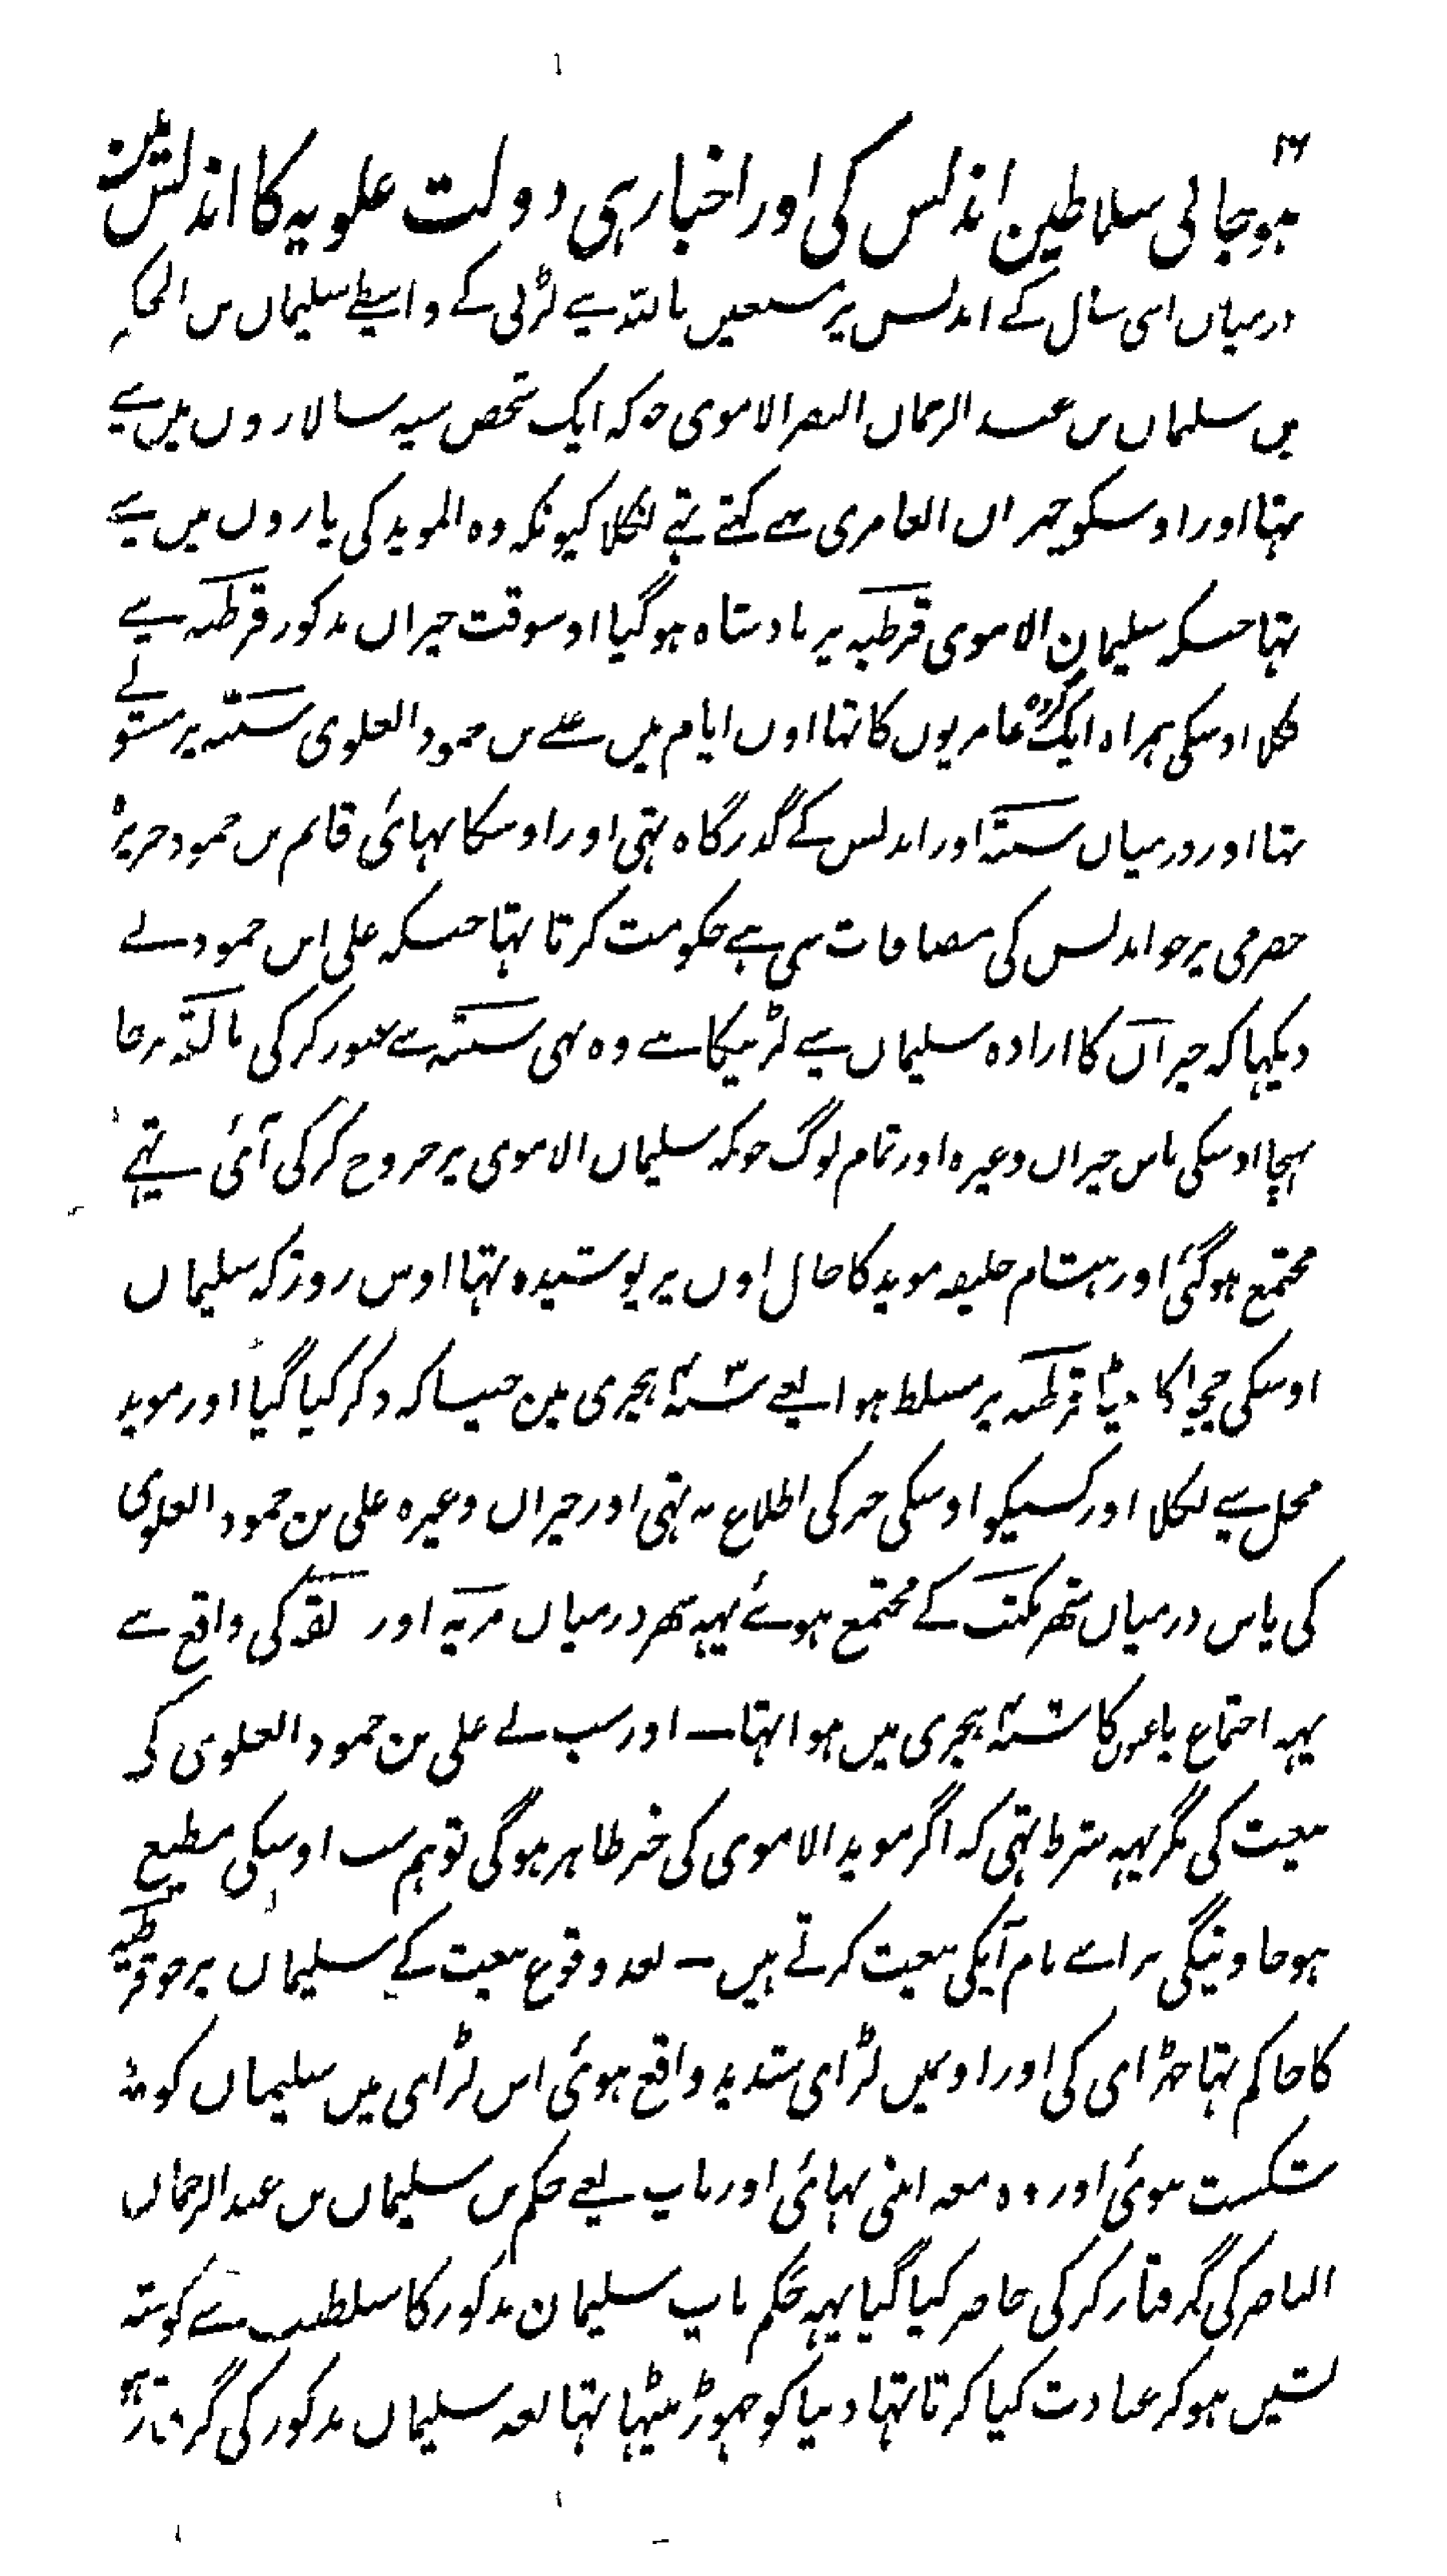 ۲۶
ہوجانی سلاطین اندلس کی اور اخبار ہی دولت علویہ کا اندلس میں
درمیان اسی سال کے اندلس پر مالقہ سے لڑنی کے واسطے سلیمان بن الحکم
بن سلیمان بن عبد الرحمان النصر الاموی جو کہ ایک شخص سپہ سالاروں میں سے
تہا اور اوسکو خیران العامری سے کہتے تہے نکلا کیونکہ وہ الموید کی یاروں میں سے
تہا جبکہ سلیمان الاموی قرطبہ پر بادشاہ ہوگیا اوسوقت خیران مذکور قرطبہ سے
نکلا اوسکی ہمراہ ایک گروہ عامریوں کا تہا اون ایام میں علے بن حمود العلوی سبتہ پر مستولے
تہا اور درمیان سبتہ اور اندلس کے گذرگاہ تہی اور اوسکا بہائی قاسم بن حمود جزیرہ
خضرمی پر جو اندلس کی مضافات سی ہے حکومت کرتا تہا جبکہ علی ابن حمود نے
دیکہا کہ خیران کا ارادہ سلیمان سے لڑنیکا ہے وہ بہی سبتہ سے عبور کر کی مالقہ پر جا
پہنچا اوسکی پاس خیران وغیرہ اور تمام لوگ جوکہ سلیمان الاموی پر خروج کر کی آئی تہے
مجتمع ہوگئی اور ہشام خلیفہ موید کا حال اون پر پوشیدہ تہا اوس روز کہ سلیمان
اوسکی چچا کا بیٹا قرطبہ پر مسلط ہوا یعے سنہ ۴۰۳ ہجری مین جیسا کہ ذکر کیا گیا اور موید
محل سے نکلا اور کسیکو اوسکی خبر کی اطلاع نہ تہی اور خیران وغیرہ علی بن حمود العلوی
کی پاس درمیان شہر مکنب کے مجتمع ہوئے یہہ شہر درمیان مریہ اور لقہ کی واقع ہے
یہہ اجتماع باغیوں کا سنہ ہجری میں ہوا تہا۔ اور سب نے علی بن حمود العلوی کی
بیعت کی مگر یہہ شرط تہی کہ اگر موید الاموی کی خبر ظاہر ہوگی تو ہم سب اوسکی مطیع
ہوجاوینگی براے نام آپکی بیعت کرتے ہیں۔ بعد وقوع بیعت کے سلیمان پر جو قرطبہ
کا حاکم تہا چڑائی کی اور اوسمیں لڑائی شدید واقع ہوئی اس لڑائی میں سلیمان کو
شکست ہوئی اور وہ معہ اپنی بہائی اور باپ یعے حکم بن سلیمان بن عبد الرحمان
الناصر کی گرفتار کر کی حاضر کیا گیا یہہ حکم باپ سلیمان مذکور کا سلطنت سے گوشہ
نشین ہو کر عبادت کیا کرتا تہا دنیا کو چہوڑ بیٹہا تہا بعد سلیمان مذکور کی گرفتار ہو